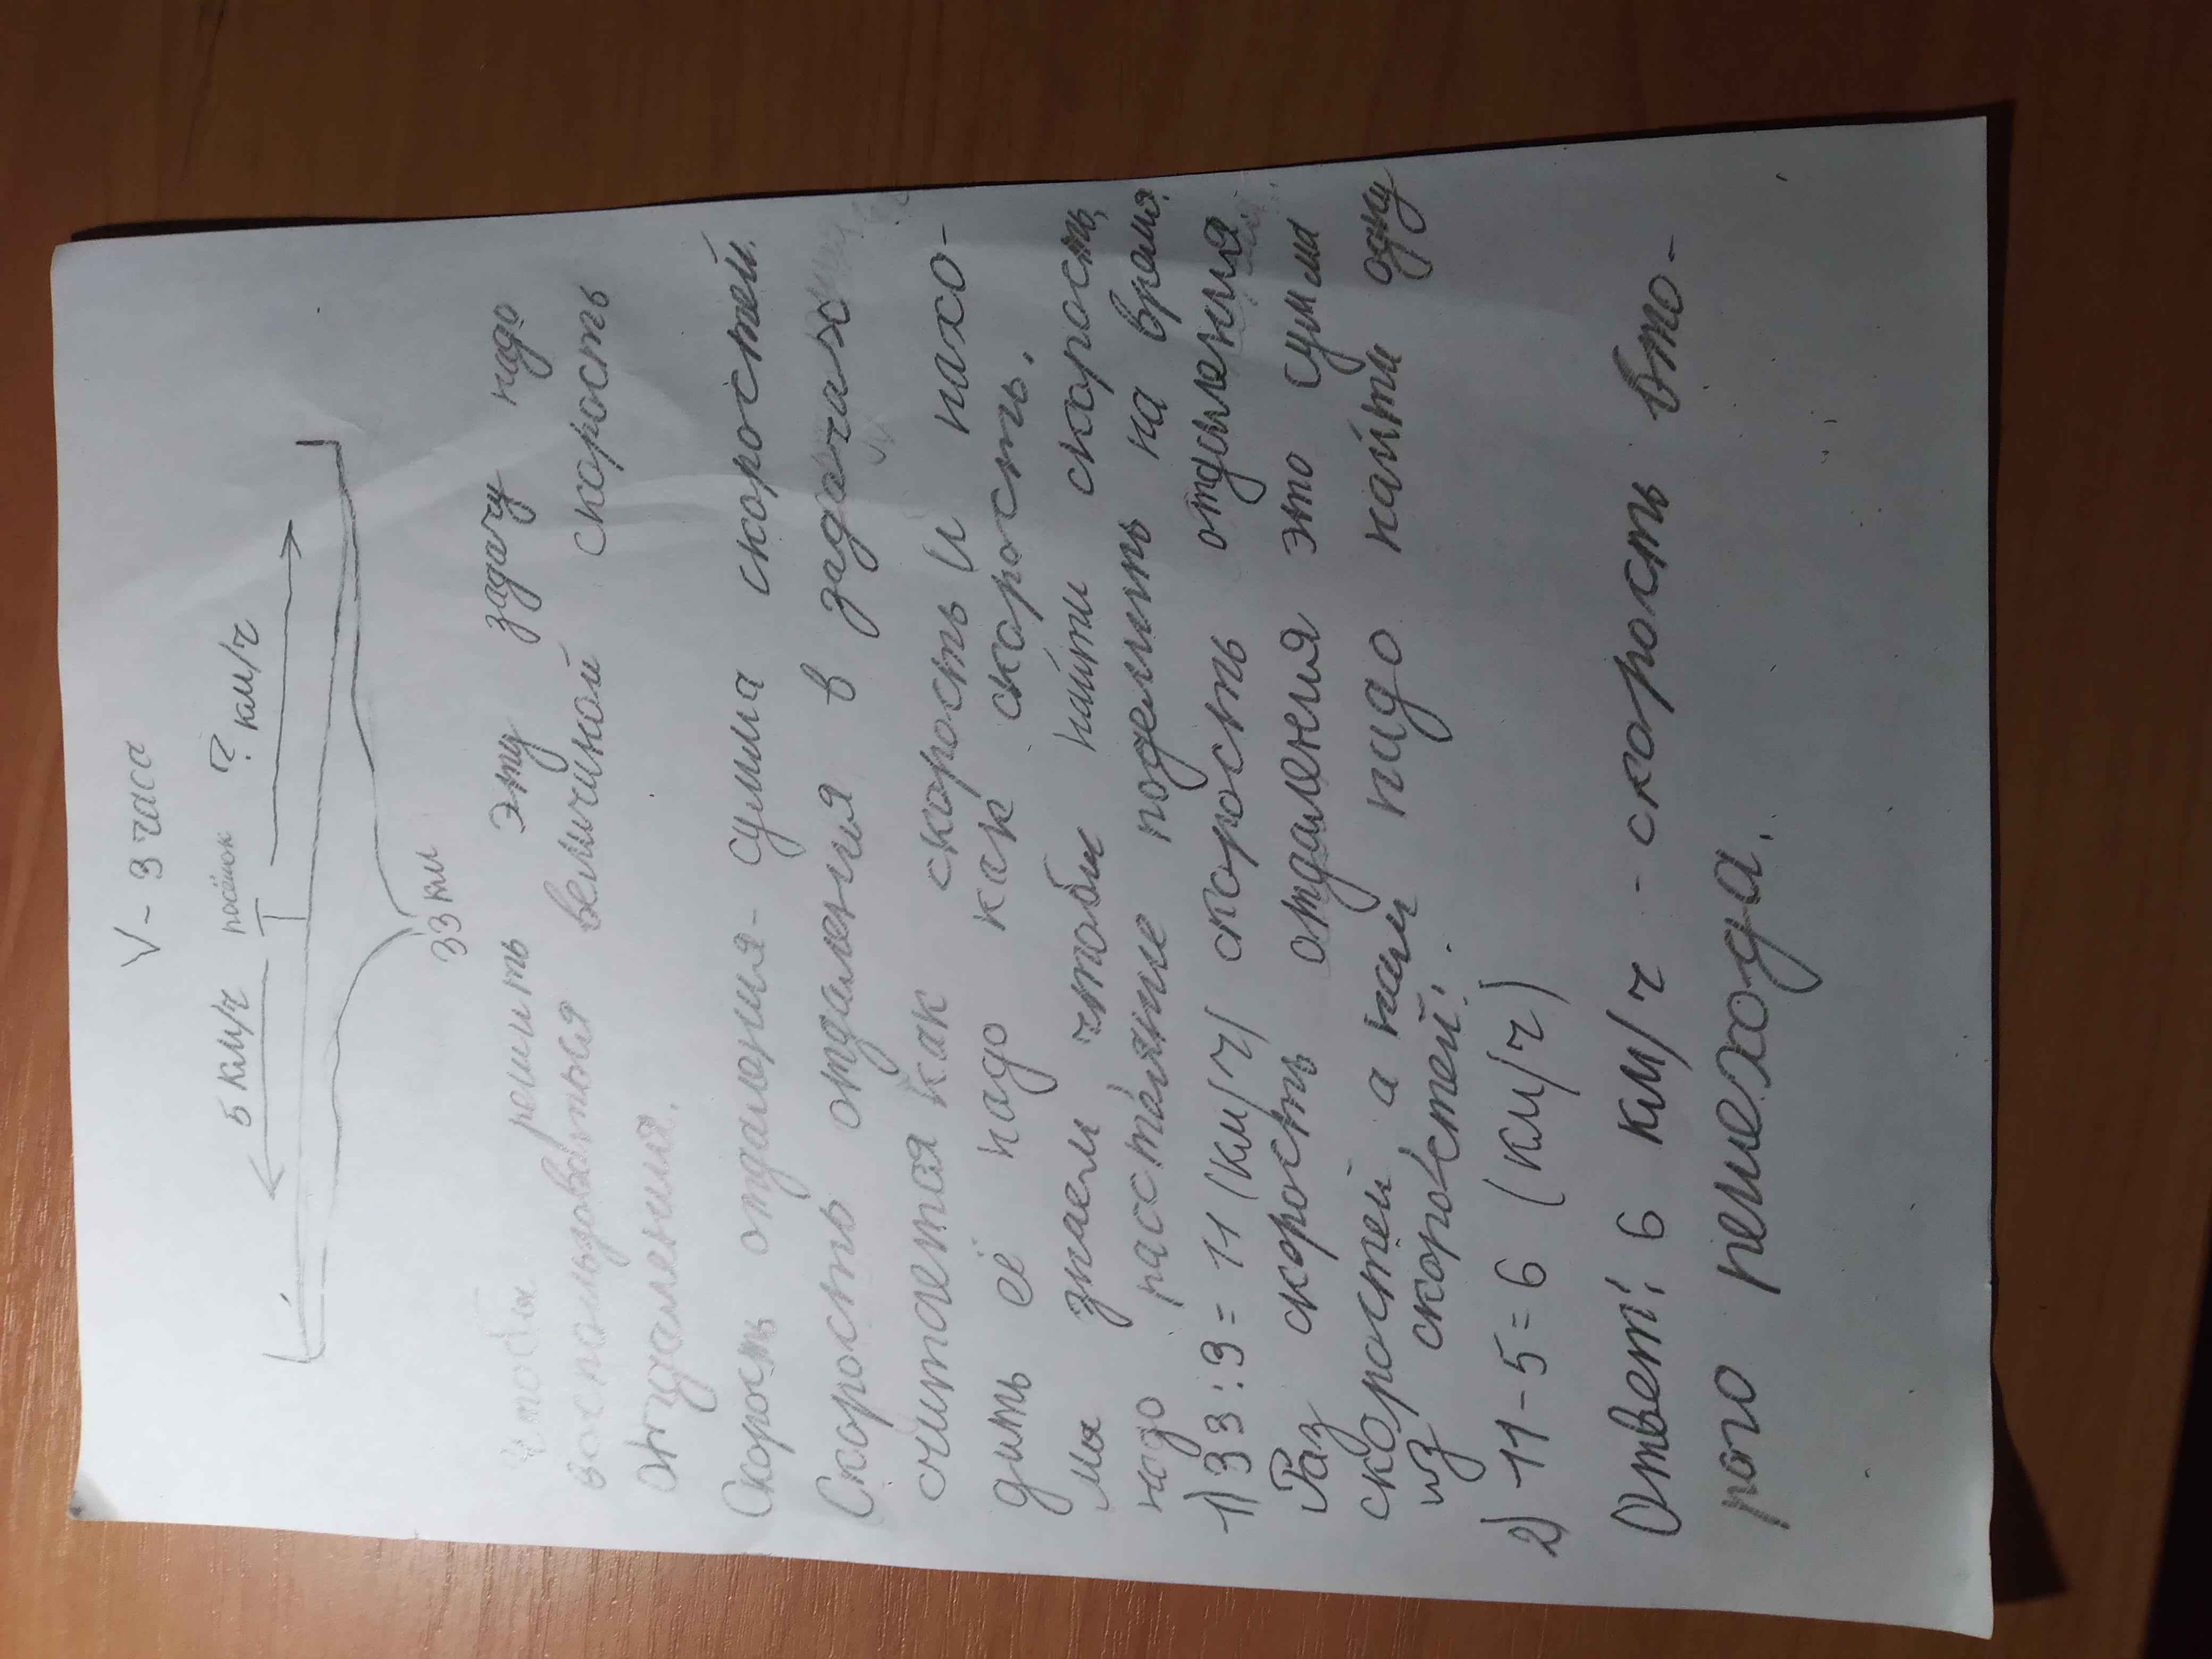 V - 3 часа
5 км/ч посёлок ? км/ч
33 км
Чтобы решить эту задачу надо
воспользоваться величиной скорость
отдаления.
Скорость отдаления - сумма скоростей.
Скорость отдаления в задачах
считается как скорость и нахо-
дить её надо как скорость.
мы знаем чтобы найти скорость
надо расстаяние поделить на время.
1) 33:3=11 (км/ч) скорость отдаления.
Раз скорость отдаления это сумма
скоростей а нам надо найти одну
из скоростей:
2) 11-5=6 (км/ч)
Ответ: 6 км/ч - скорость вто-
рого пешехода.